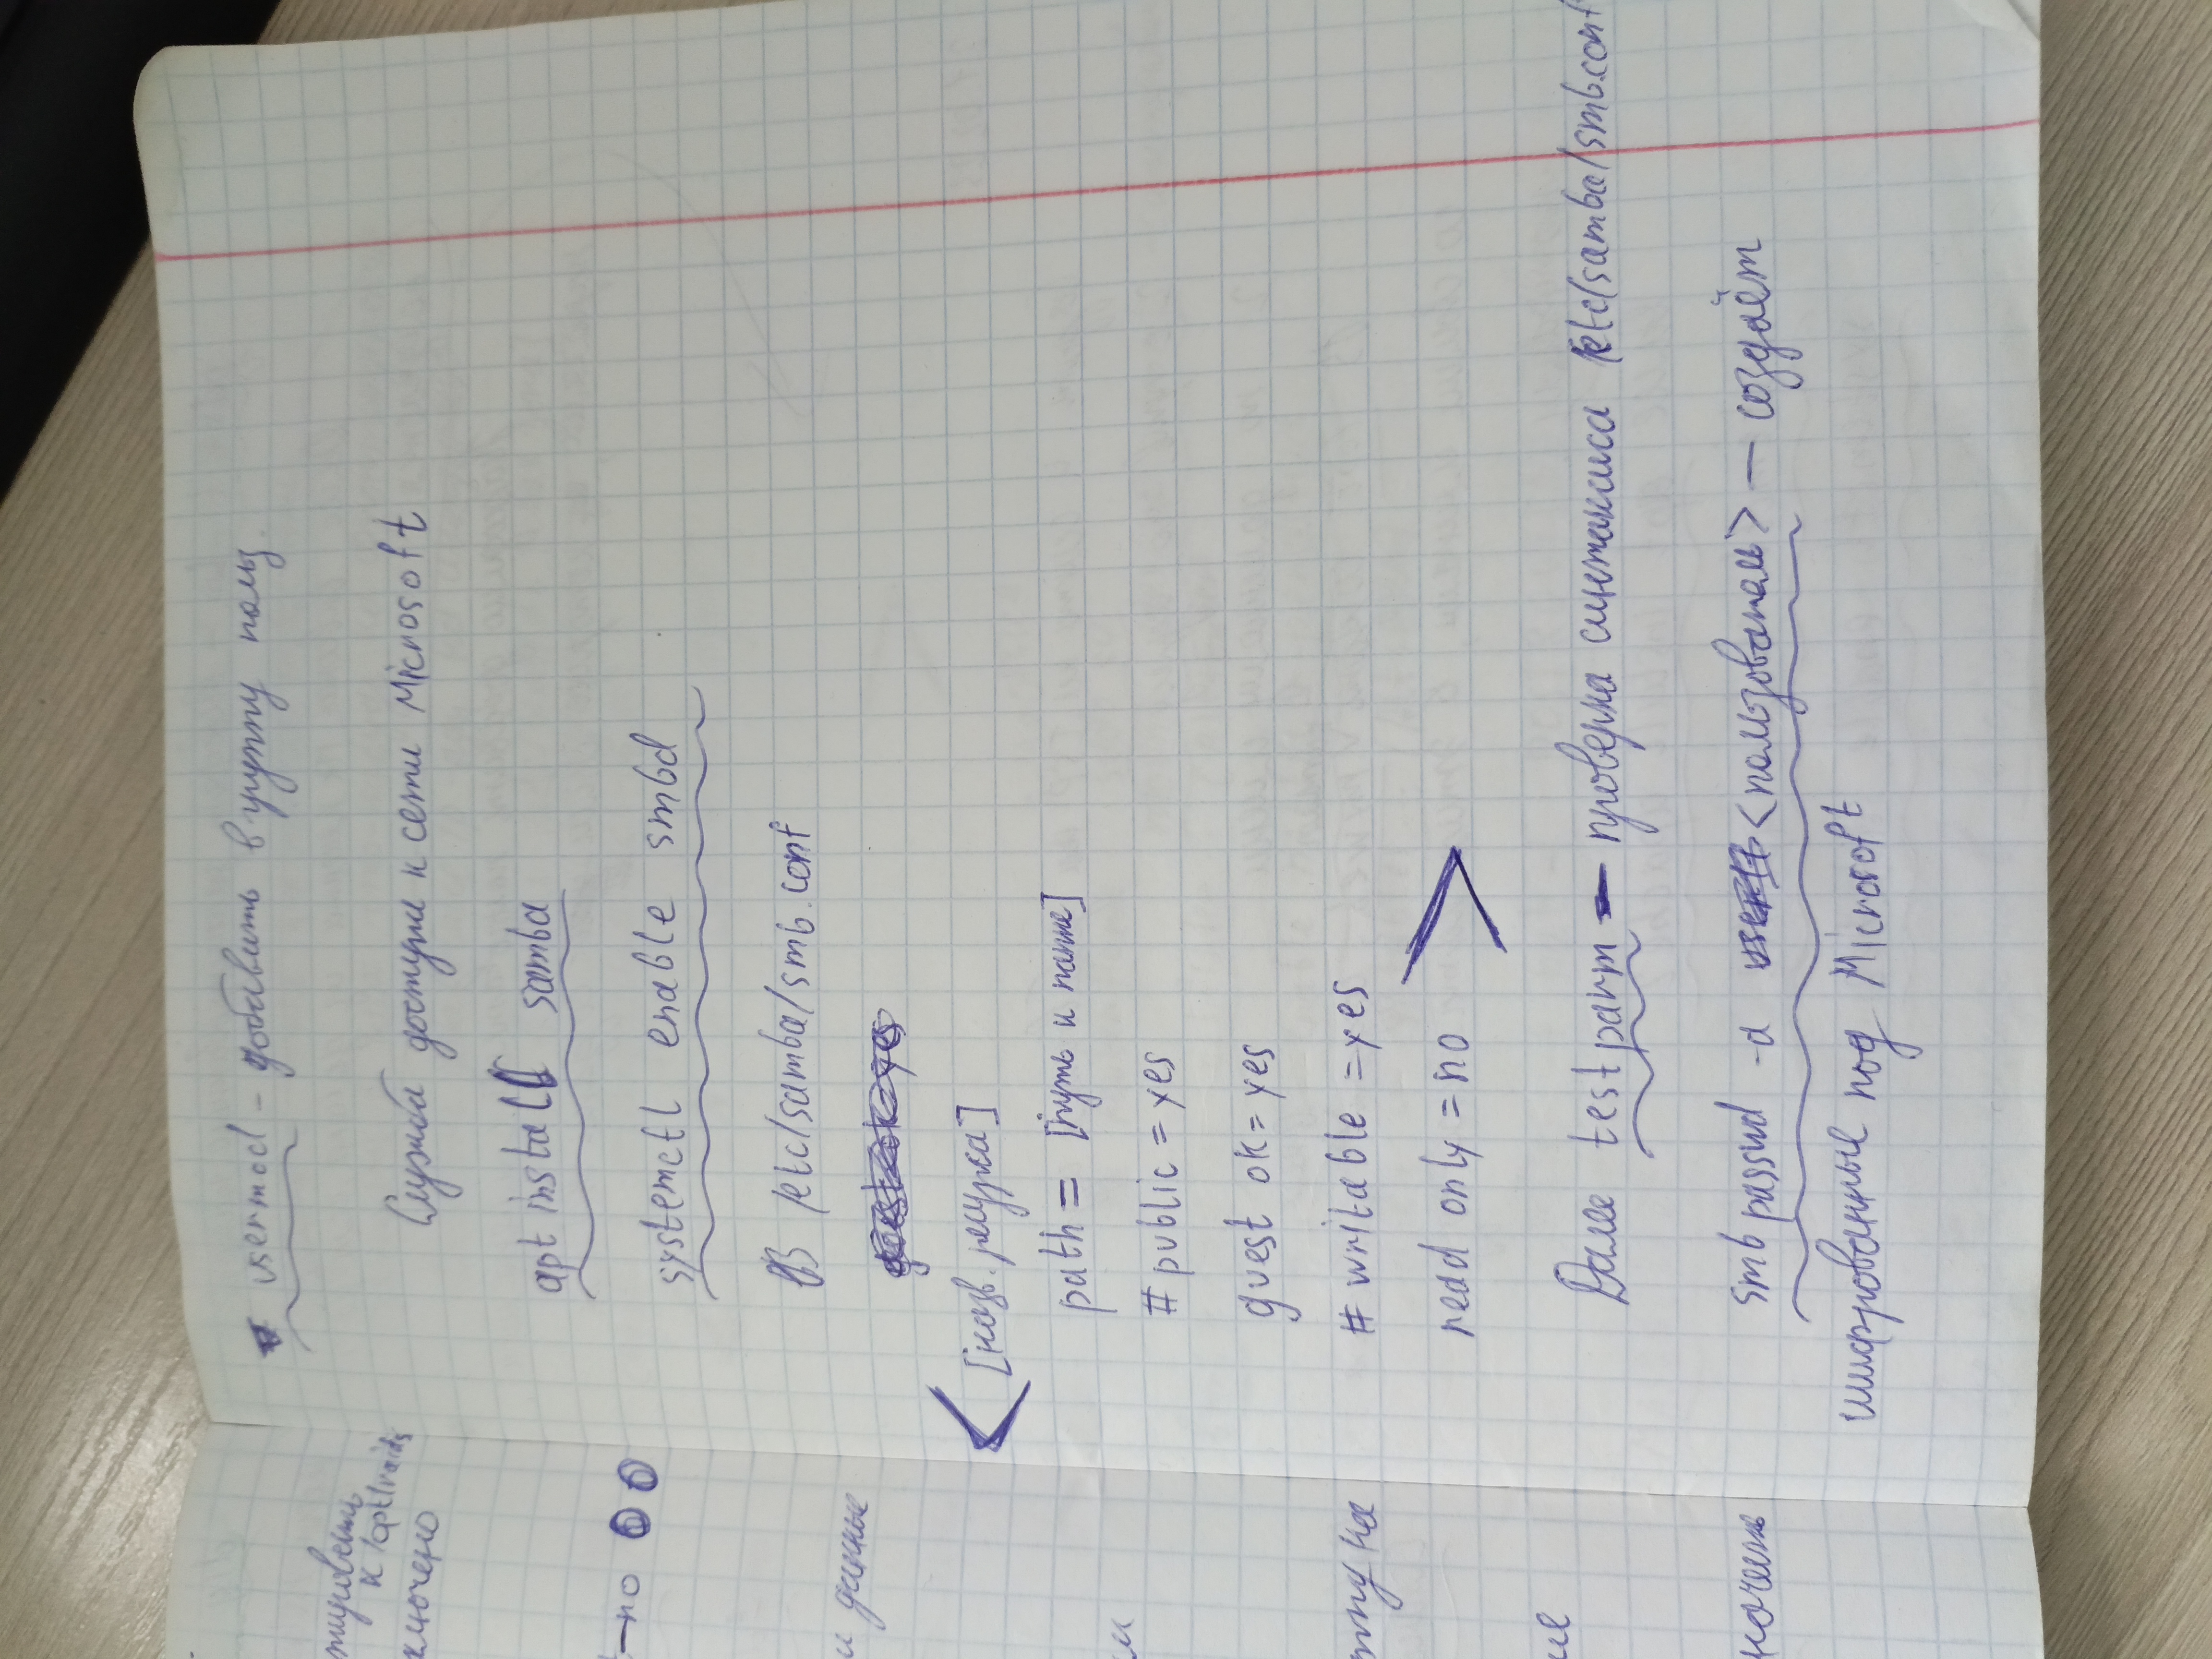 usermod - добавить в группу польз.
Служба доступа к сети Microsoft
apt install samba
systemctl enable smbd
В /etc/samba/smb.conf
guest ok = yes
[назв. ресурса]
path = [путь к папке]
# public = yes
guest ok = yes
# writable = yes
read only = no
Далее testparm — проверка синтаксиса /etc/samba/smb.conf
smbpasswd -a <пользователь> — создаём
шифрованные под Microsoft
к /opt/raid5
ключено
—no
и данные